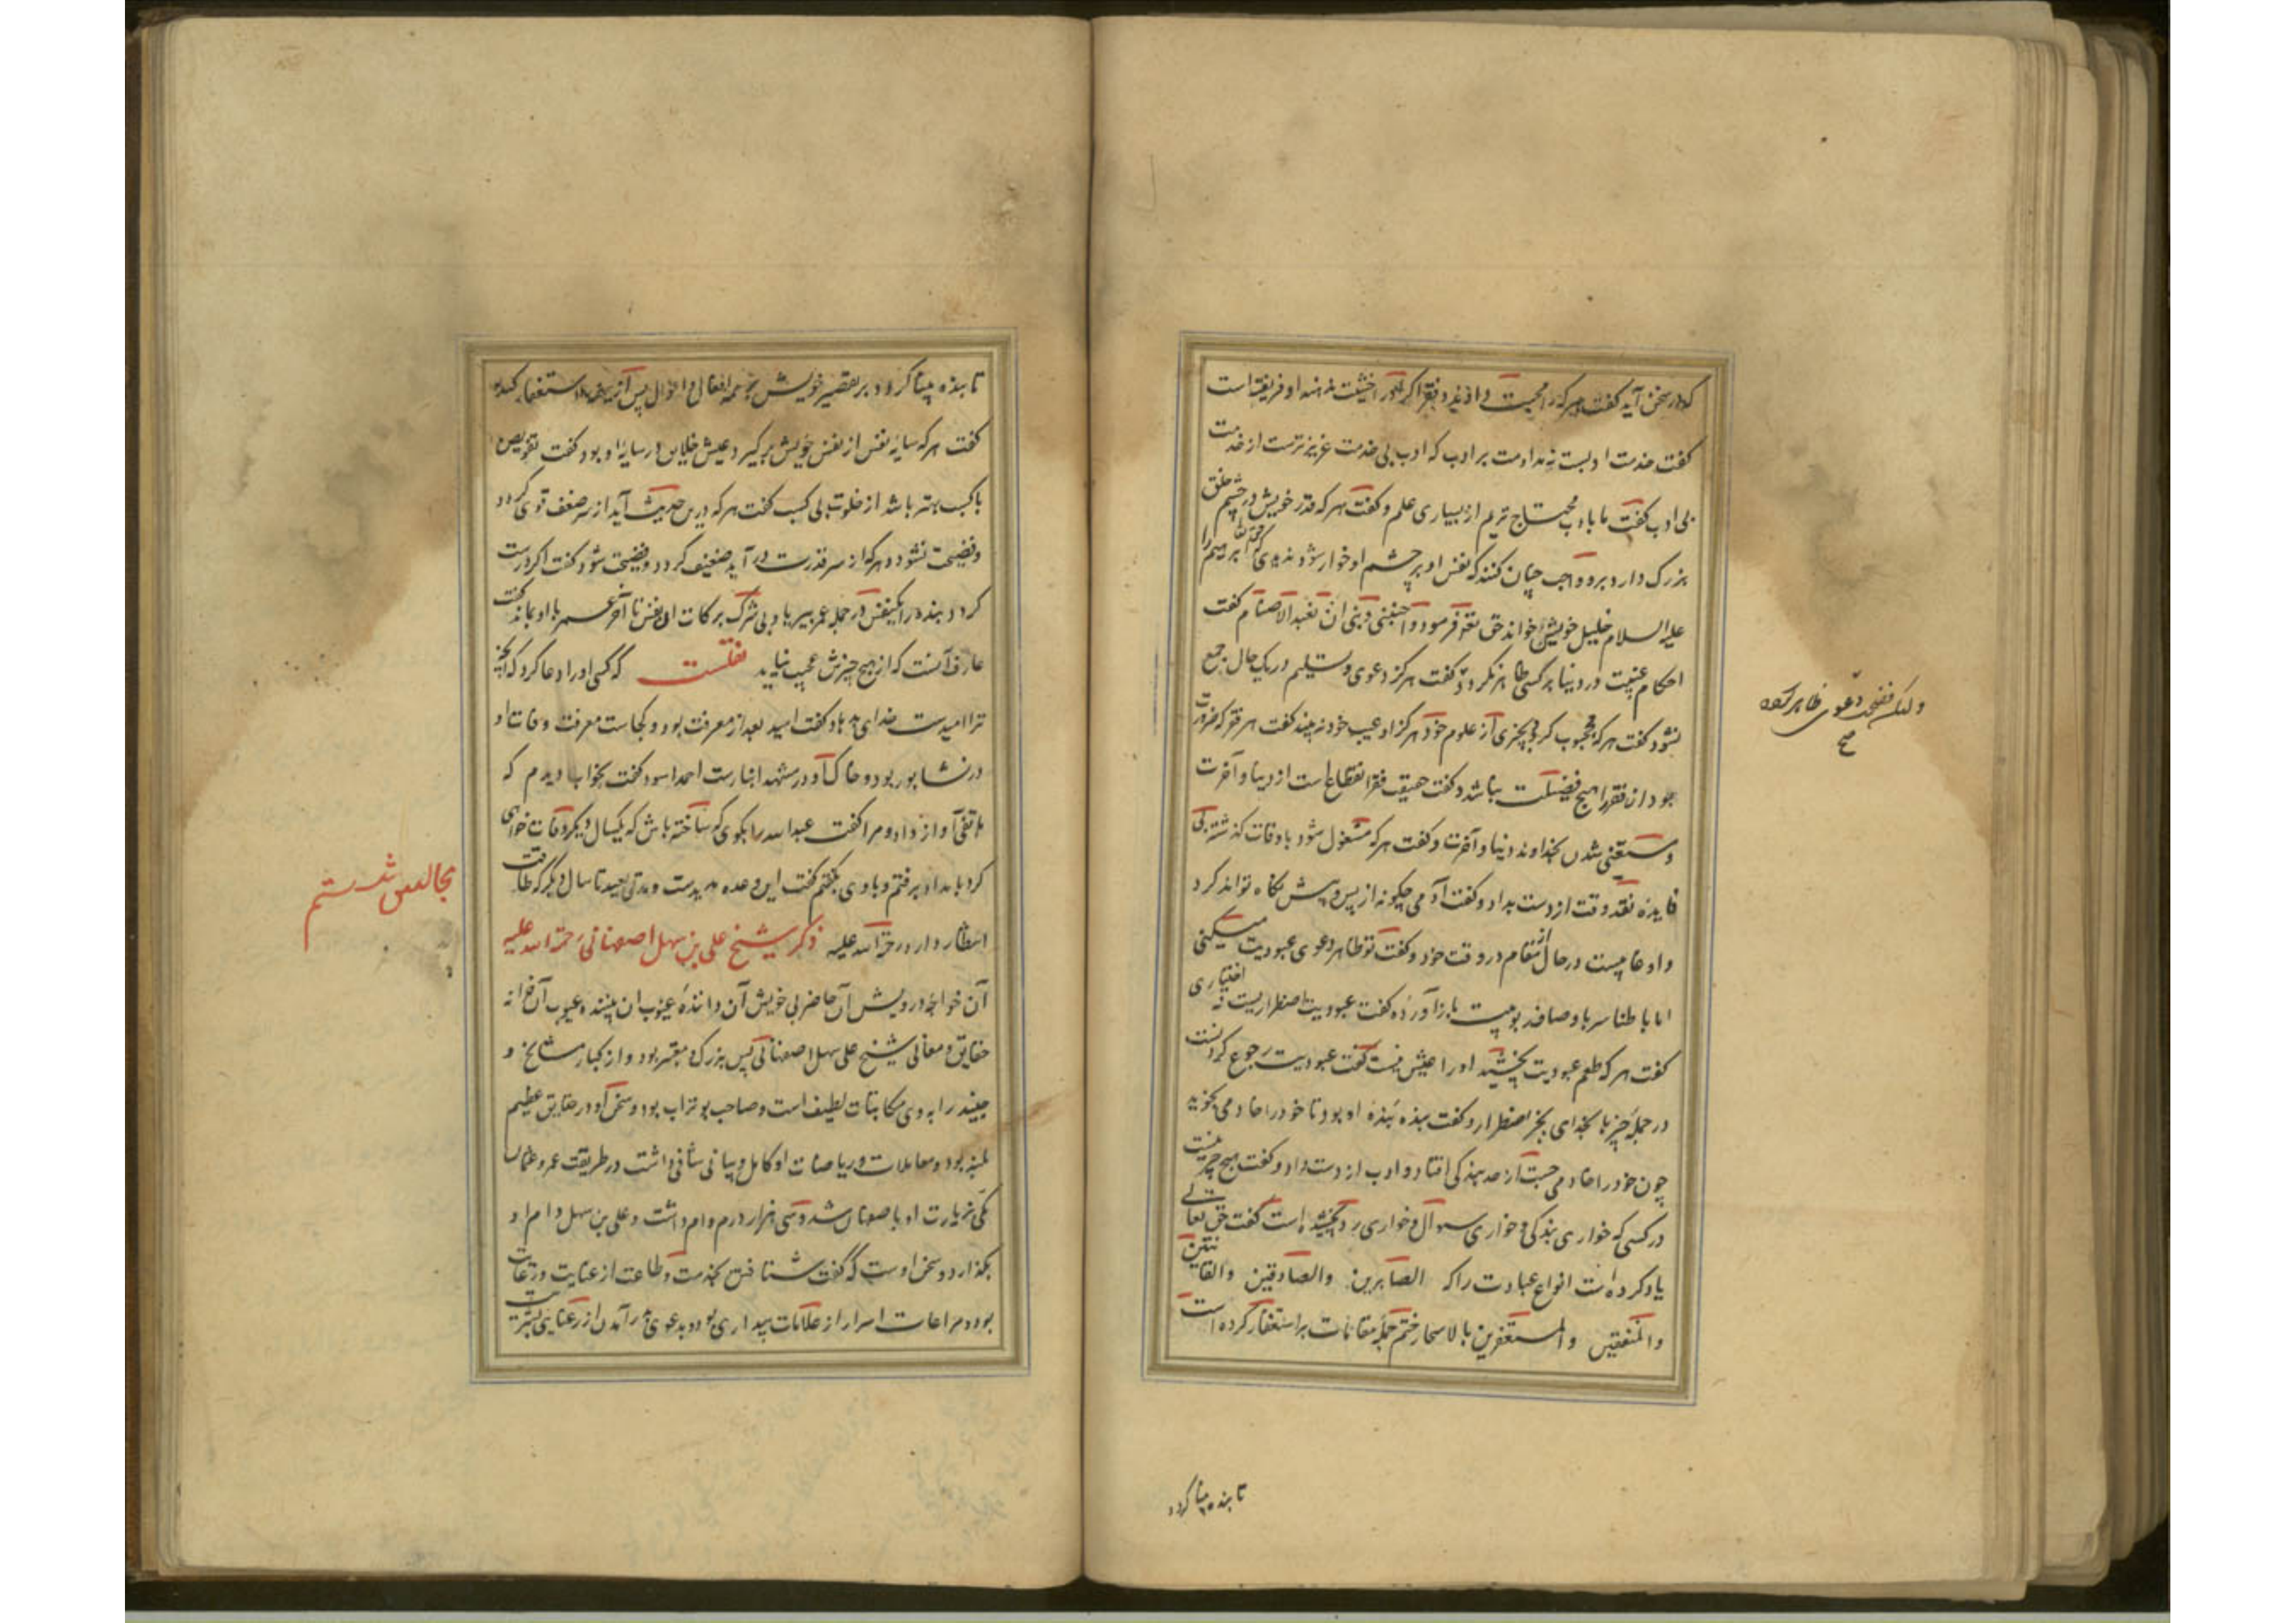 که در سخن آید گفت هر که را محبت دادند و بقدر آن اگر او را خشیت ندهند او فریفته است
گفت خدمت ادبست نه مداومت بر ادب که ادب بی خدمت عزیزترست از خدمت
بی ادب گفت ما بادب محتاج تریم از بسیاری علم و گفت هر که قدر خویش در چشم خلق
بزرگ دارد برو واجب چنان کند که نفس او بر چشم او خوار شود ندیدی که ابرهیم را
علیه السلام خلیل خویش خواند حق تعالی فرمود واجنبنی وبنی ان نعبد الاصنام گفت
احکام غیبت در دنیا بر کسی ظاهر نگردد گفت هرگز دعوی و تسلیم در یک حال جمع
نشود گفت هر که محجوب گردد بچیزی از علوم خود هرگز او عیب خود نه بیند گفت هر فقر که ضرورت
بود از ان فقر را هیچ فضیلت نباشد و گفت حقیقت فقر انقطاع است از دنیا و آخرت
و مستغنی شدن بخداوند دنیا و آخرت و گفت هر که مشغول شود باوقات گذشته بی
فایده نقد وقت از دست بداد و گفت آدمی چگونه از پس و پیش نگاه تواند کرد
و او غایبست در حال از مقام در وقت خود و گفت تو ظاهر دعوی عبودیت میکنی
اما باطنا سر باوصاف ربوبیت باز آورده گفت عبودیت اضطراریست نه اختیاری
گفت هر که طعم عبودیت بچشید او را عیش نیست گفت عبودیت رجوع کردنست
در جمله چیزها بخدای بجز اضطرار و گفت بنده بنده او بود تا خود را خادمی نجوید
چون خود را خادمی جست از حد بندگی افتاد و ادب از دست داد و گفت هیچ خیر نیست
در کسی که خواری بندگی و خواری سوال و خواری رد نچشیده است گفت حق تعالی
یاد کرده است انواع عبادت را که الصابرین والصادقین والقانتین
والمنفقین والمستغفرین بالاسحار ختم جمله مقامات بر استغفار کرده است
تا بنده بینا گردد
تا بنده بینا گردد بر تقصیر خویش بر همه افعال و احوال پس از همه استغفار کند
گفت هر که سایه نفس از نفس خویش برگیرد عیش خلایق در سایه او بود گفت تفویض
با کسب بهتر باشد از خلوت بی کسب گفت هر که درین حدیث آید از سر ضعف قوی گردد
و فضیحت نشود و هر که از سر قدرت در آید ضعیف گردد و فضیحت شود گفت اگر درست
گردد بنده را یکنفس در جمله عمر بی ریا و بی شرک برکات ان نفس تا آخر عمر با او بماند گفت
عارف آنست که از هیچ چیزش عجب نیاید نقلست که کسی او را دعا کرد که آنچه
ترا امیدست خدای بدهاد گفت امید بعد از معرفت بود و کجاست معرفت وفات او
در نشابور بود و خاک او در مشهد انبارست احمد اسود گفت بخواب دیدم که
هاتفی آواز داد و مرا گفت عبد الله را بگوی که ساخته باش که یکسال دیگر وفات خواهی
کرد بامداد برفتم و با وی بگفتم گفت این وعده مدیدست و مدتی بعید تا سال دیگر که طاقت
انتظار دارد رحمة الله علیه ذکر شیخ علی بن سهل اصفهانی رحمة الله علیه
آن خواجه درویش آن حاضر بی خویش آن داننده غیوب ان بیننده عیوب آن خزانه
حقایق و معانی شیخ علی سهل اصفهانی بس بزرگ و معتبر بود و از کبار مشایخ و
جنید را بدوی مکاتبات لطیف است و صاحب بو تراب بود و سخن او در حقایق عظیم
بلند بود و معاملات و ریاضات او کامل و بیانی شافی داشت در طریقت عمرو عثمان
مکی بزیارت او باصفهان شد و سی هزار درم وام داشت و علی بن سهل وام او
بگذارد و سخن اوست که گفت شتافتن بخدمت و طاعت از عنایت و رعایت
بود و مراعات اسرار از علامات بیداری بود و بدعوی در آمدن از رعنایی بشریت